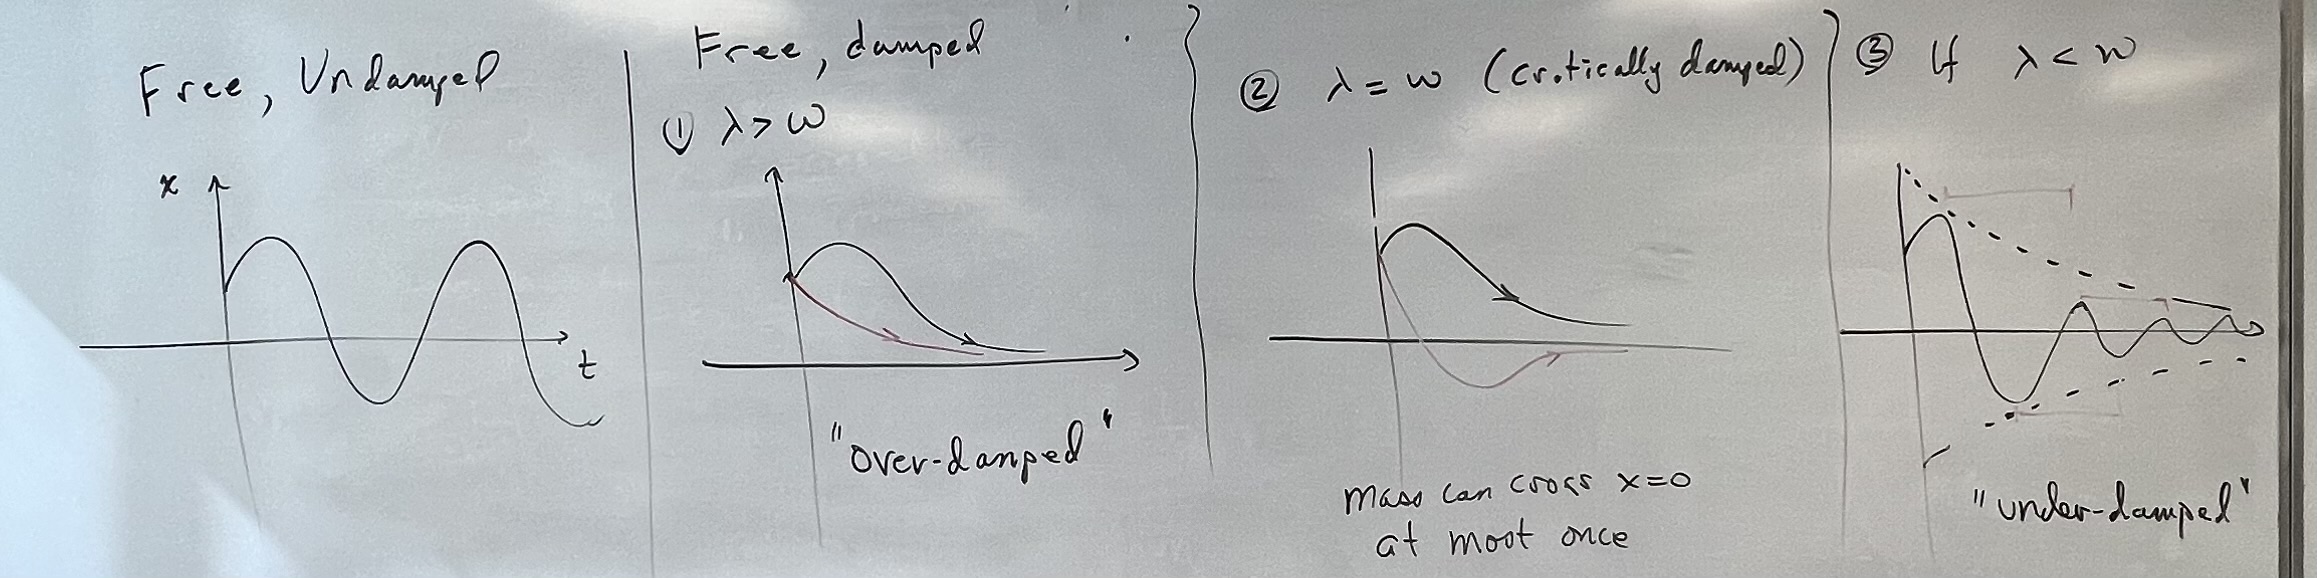 Free, Undamped
x
t
Free, damped
① λ > ω
"over-damped"
② λ = ω (critically damped)
mass can cross x=0
at most once
③ If λ < ω
"under-damped"